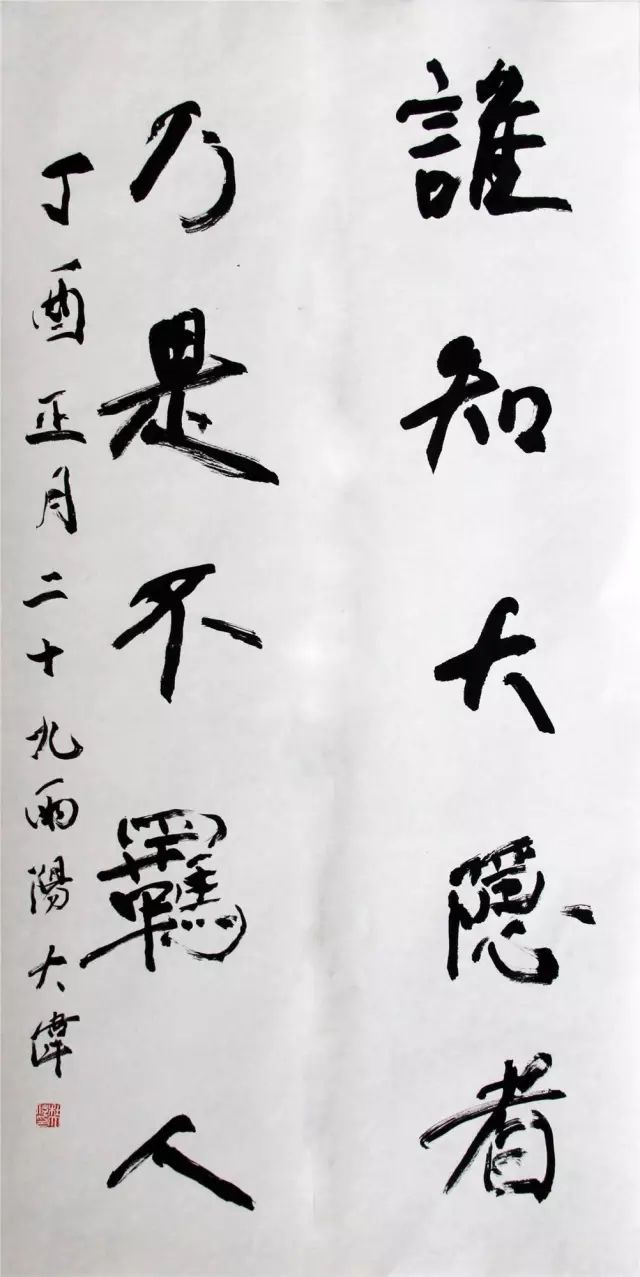 誰知大隱者
乃是不羈人
丁酉正月二十九雨陽大偉